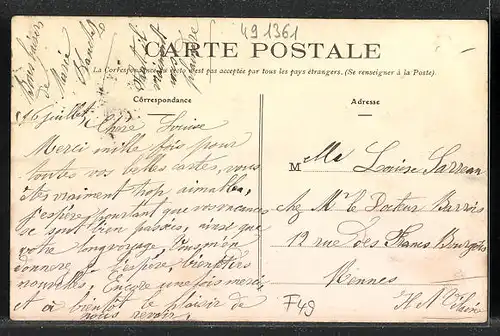 491361
Bons baisers
de
Marie
Blanche
CARTE POSTALE
La Correspondance au recto n'est pas acceptée par tous les pays étrangers. (Se renseigner à la Poste).
Correspondance
Adresse
16 juillet
Chère Louise
Merci mille fois pour
toutes vos belles cartes, vous
êtes vraiment trop aimable,
j'espère pourtant que vos vacances
se sont bien passées, ainsi que
votre long voyage. Vous
donnerez j'espère, bientôt
nouvelles. Encore une fois merci
et à bientôt le plaisir de
nous revoir.
Melle Louise Sarreau
chez Mr le Docteur Barrois
12 rue des Francs Bourgeois
Rennes
Ille et Vilaine
F49